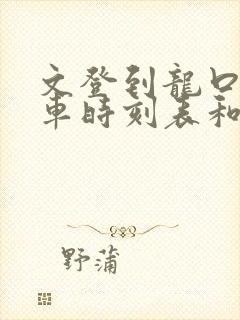 文登到龍口
車時刻表和
野蒲